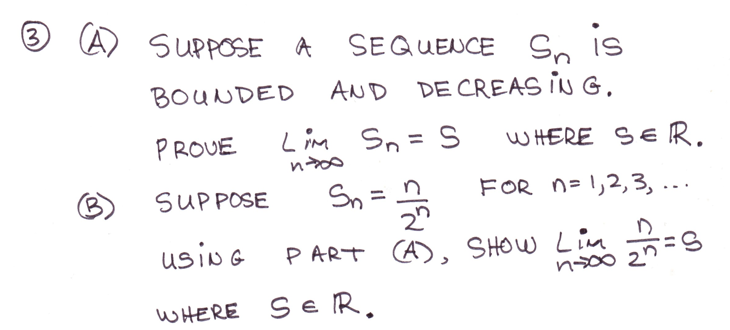 ③ (A) SUPPOSE A SEQUENCE Sₙ is
BOUNDED AND DECREASING.
PROVE Lim n→∞ Sₙ = S WHERE S ∈ ℝ.
(B) SUPPOSE Sₙ = n/2ⁿ FOR n = 1, 2, 3, ...
USING PART (A), SHOW Lim n→∞ n/2ⁿ = S
WHERE S ∈ ℝ.